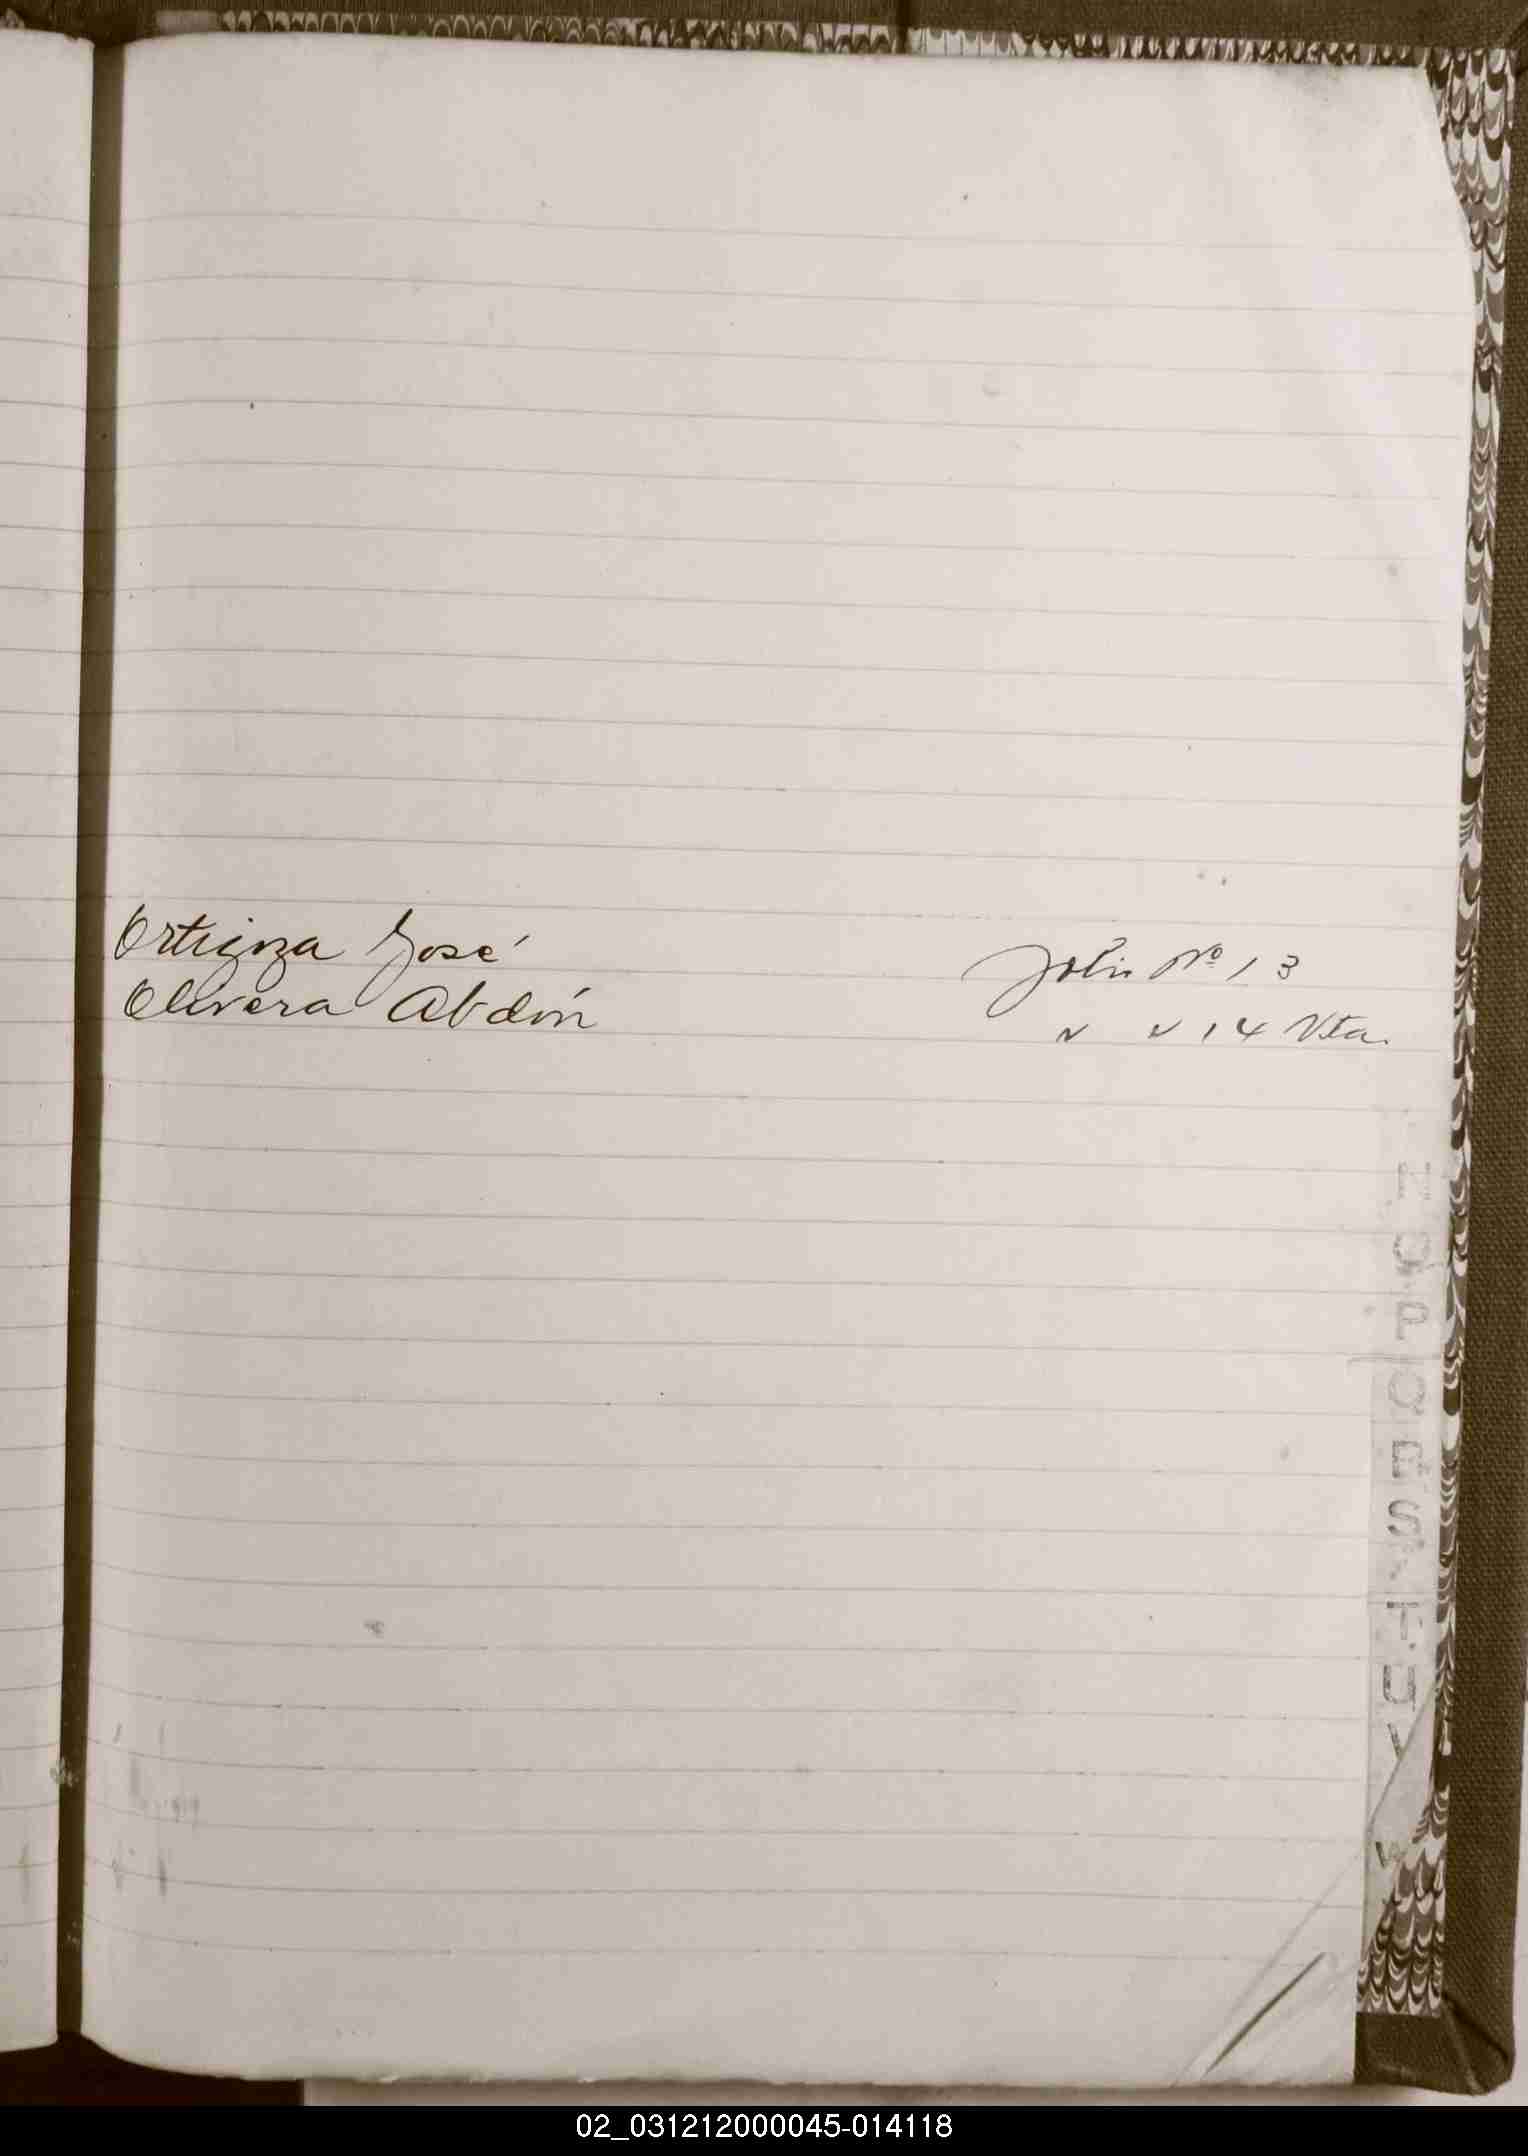 Ortigoza José Folio Nº 13
Olivera Abdón " " 14 Vta.
02_031212000045-014118